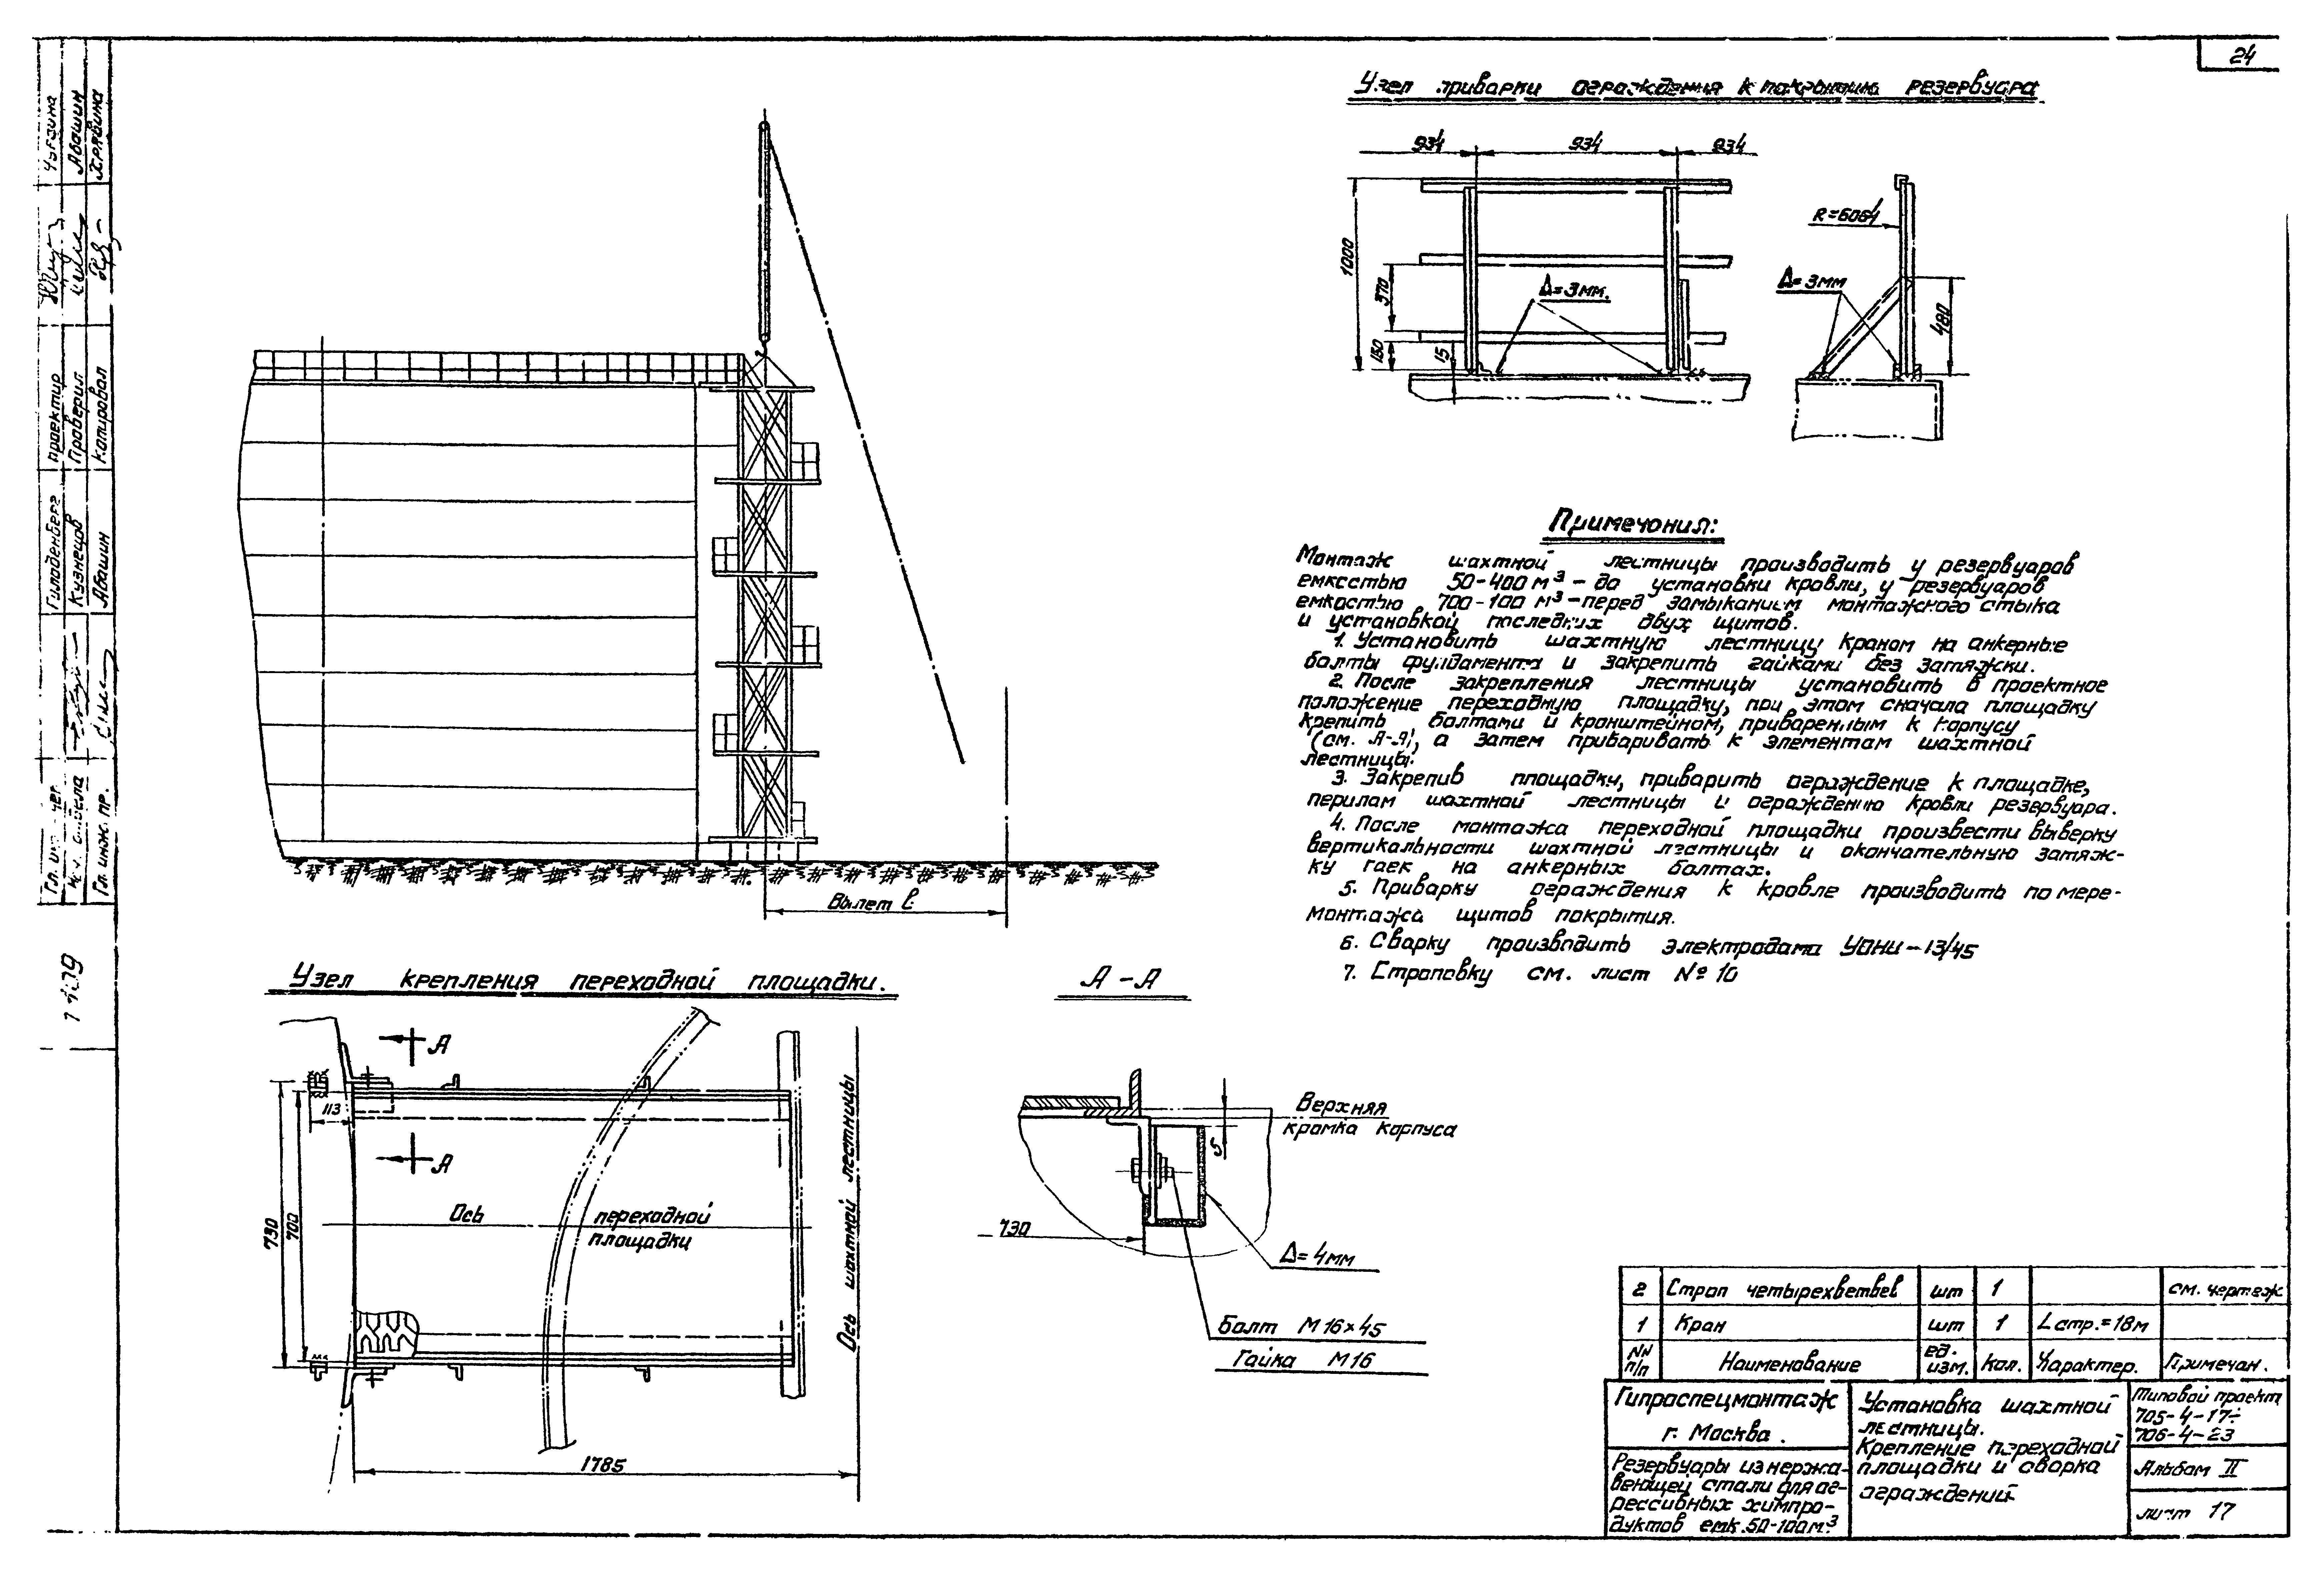 24
Узел приварки ограждения к покрытию резервуара
934
934
934
1000
370
150
15
Δ=3мм.
R=6064
Δ=3мм
480
Примечания:
Монтаж шахтной лестницы производить у резервуаров
емкостью 50-400 м³ - до установки кровли, у резервуаров
емкостью 700-100 м³ - перед замыканием монтажного стыка
и установкой последних двух щитов.
1. Установить шахтную лестницу краном на анкерные
болты фундамента и закрепить гайками без затяжки.
2. После закрепления лестницы установить в проектное
положение переходную площадку, при этом сначала площадку
крепить болтами и кронштейном, приваренным к корпусу
(см. А-А), а затем приваривать к элементам шахтной
лестницы.
3. Закрепив площадку, приварить ограждение к площадке,
перилам шахтной лестницы и ограждению кровли резервуара.
4. После монтажа переходной площадки произвести выверку
вертикальности шахтной лестницы и окончательную затяж-
ку гаек на анкерных болтах.
5. Приварку ограждения к кровле производить по мере-
монтажа щитов покрытия.
6. Сварку производить электродама УОНИ-13/45
7. Строповку см. лист № 10
Вылет
Узел крепления переходной площадки.
А
А
113
730
700
Ось переходной
площадки
Ось шахтной лестницы
1785
А-А
Верхняя
кромка корпуса
5
730
Δ=4мм
Болт М16×45
Гайка М16
2 Строп четырехветвев шт 1 см. чертеж
1 Кран шт 1 Lстр.=18м
NN п/п Наименование ед. изм. Кол. Характер. Примечан.
Гипроспецмонтаж
г. Москва.
Резервуары из нержа-
веющей стали для аг-
рессивных химпро-
дуктов емк.50-100м³
Установка шахтной
лестницы.
Крепление переходной
площадки и сварка
ограждений
Типовой проект
705-4-17÷
706-4-23
Альбом II
лист 17
Абашин
Хрявина
проектир
Проверил
Копировал
Гильденберг
Кузнецов
Абашин
Гл. инж. пр.